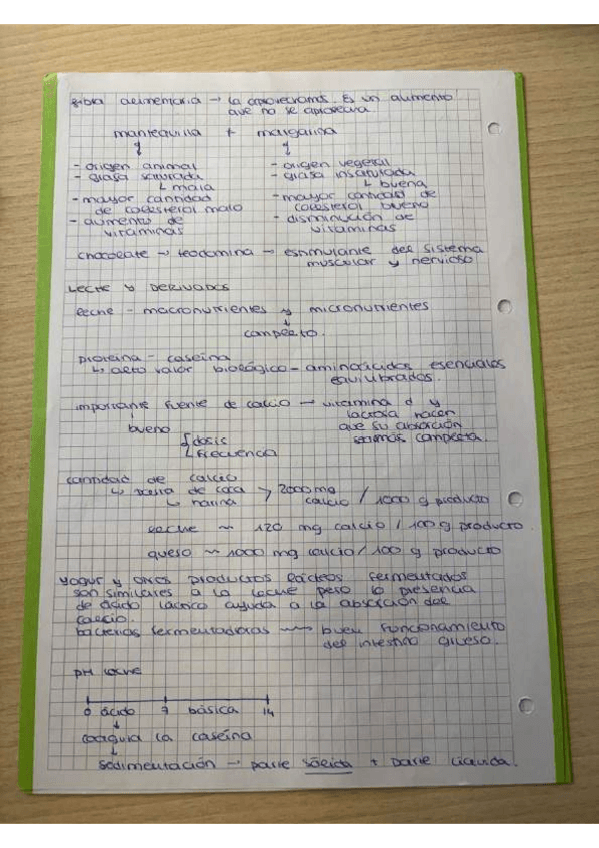 fibra alimentaria → la aprovechamos. Es un alimento
que no se aprovecha
mantequilla + margarina
- origen animal
- grasa saturada
↳ mala
- mayor cantidad
de colesterol malo
- aumento de
vitaminas
- origen vegetal
- grasa insaturada
↳ buena
- mayor cantidad de
colesterol bueno
- disminución de
vitaminas
chocolate → teodomina → estimulante del sistema
muscular y nervioso
LECHE Y DERIVADOS
leche - macronutrientes y micronutrientes
↓
completo.
proteína - caseína
↳ alto valor biológico - aminoácidos esenciales
equilibrados.
importante fuente de calcio → vitamina d y
lactosa hacen
bueno
que su absorción
dosis
completa.
frecuencia
cantidad de calcio
↳ de coca > 2000 mg
↳ harina calcio / 1000 g producto
leche ~ 120 mg calcio / 100 g producto.
queso ~ 1000 mg calcio / 100 g producto
yogur y otros productos lácteos fermentados
son similares a la leche pero la presencia
de ácido láctico ayuda a la absorción del
calcio.
bacterias fermentadoras → buen funcionamiento
del intestino grueso.
pH leche
0 ácido 7 básica 14
↓
coagula la caseína
↓
sedimentación → parte sólida + parte líquida.